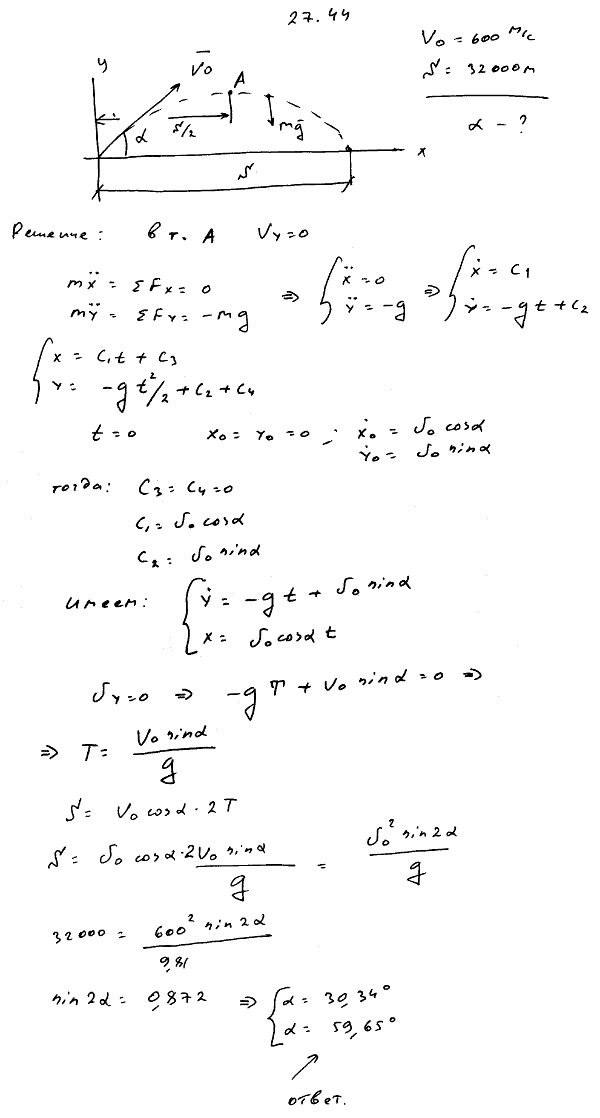 27.44
V₀ = 600 м/с
S = 32000м
α - ?
y
V̄₀
A
α
S/2
mḡ
x
S
Решение: в т. A Vy=0
mẍ = ΣFx = 0
mÿ = ΣFy = -mg
⇒ { ẍ = 0
ÿ = -g
⇒ { ẋ = C₁
ẏ = -gt + C₂
{ x = C₁t + C₃
y = -g t²/2 + C₂ + C₄
t=0 x₀ = y₀ = 0 ; ẋ₀ = υ₀ cosα
ẏ₀ = υ₀ sinα
тогда: C₃ = C₄ = 0
C₁ = υ₀ cosα
C₂ = υ₀ sinα
имеем: { ẏ = -gt + υ₀ sinα
x = υ₀ cosα t
υy=0 ⇒ -gT + V₀ sinα = 0 ⇒
⇒ T = V₀ sinα / g
S = V₀ cosα · 2T
S = υ₀ cosα · 2V₀ sinα / g = υ₀² sin2α / g
32000 = 600² sin2α / 9,81
sin2α = 0,872 ⇒ { α = 30,34°
α = 59,65°
ответ.